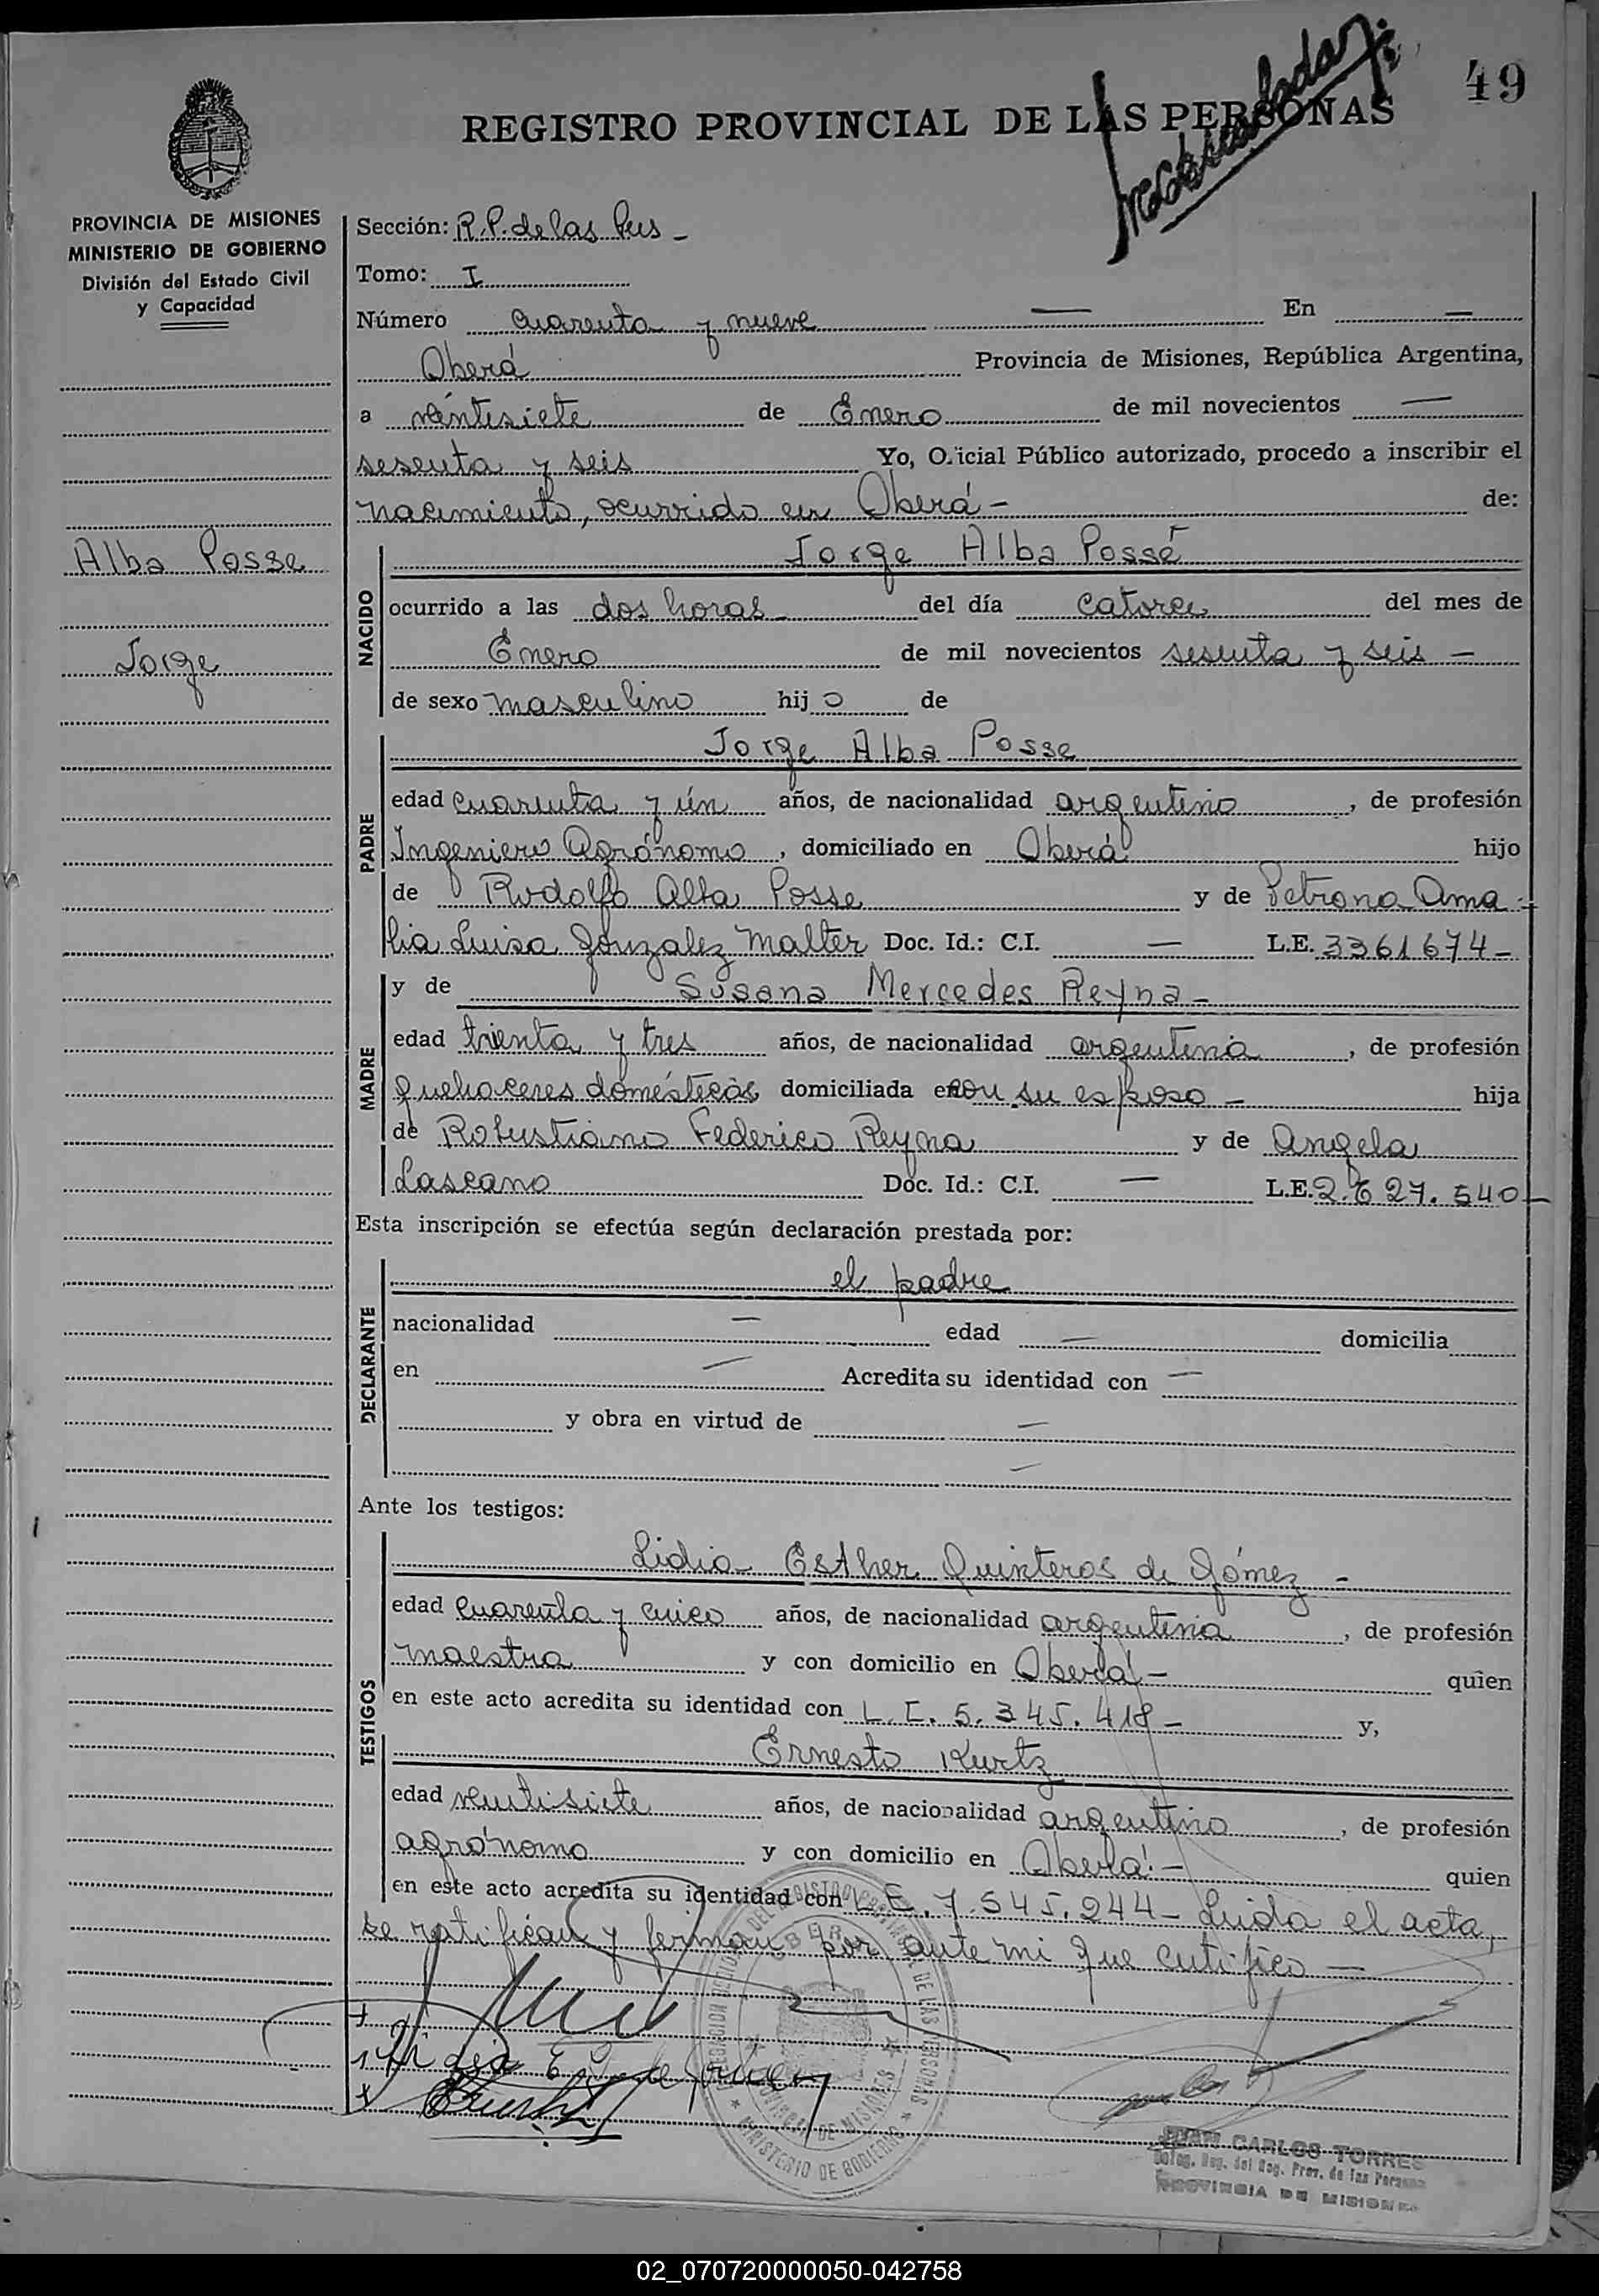 49
REGISTRO PROVINCIAL DE LAS PERSONAS
PROVINCIA DE MISIONES
MINISTERIO DE GOBIERNO
División del Estado Civil
y Capacidad
Alba Posse
Jorge
Sección: R.P. de las Pers -
Tomo: I
Número cuarenta y nueve — En —
Oberá Provincia de Misiones, República Argentina,
a veintisiete de Enero de mil novecientos —
sesenta y seis Yo, Oficial Público autorizado, procedo a inscribir el
nacimiento, ocurrido en Oberá - de:
NACIDO
Jorge Alba Posse
ocurrido a las dos horas - del día catorce del mes de
Enero de mil novecientos sesenta y seis -
de sexo masculino hijo de
PADRE
Jorge Alba Posse
edad cuarenta y ún años, de nacionalidad argentino, de profesión
Ingeniero Agrónomo, domiciliado en Oberá hijo
de Rodolfo Alba Posse y de Petrona Ama-
lia Luisa Gonzalez Malter Doc. Id.: C.I. — L.E. 3361674-
MADRE
y de Susana Mercedes Reyna -
edad trienta y tres años, de nacionalidad argentina, de profesión
quehaceres domésticos domiciliada en con su esposo - hija
de Robustiano Federico Reyna y de Angela
Lascano Doc. Id.: C.I. — L.E. 2. 27.540-
Esta inscripción se efectúa según declaración prestada por:
DECLARANTE
el padre
nacionalidad — edad — domicilia
en — Acredita su identidad con —
y obra en virtud de —
—
Ante los testigos:
TESTIGOS
Lidia Esther Quinteros de Gómez -
edad cuarenta y cinco años, de nacionalidad argentina, de profesión
maestra y con domicilio en Oberá - quien
en este acto acredita su identidad con L.C. 5.345.418 - y,
Ernesto Kurtz
edad veintisiete años, de nacionalidad argentino, de profesión
agrónomo y con domicilio en Oberá - quien
en este acto acredita su identidad con L.E. 7.545.244 - Leida el acta,
se ratifican y firman por ante mi que certifico —
MINISTERIO DE GOBIERNO
PROVINCIA DE MISIONES
JUAN CARLOS TORRES
Deleg. Reg. del Reg. Prov. de las Personas
PROVINCIA DE MISIONES
02_070720000050-042758